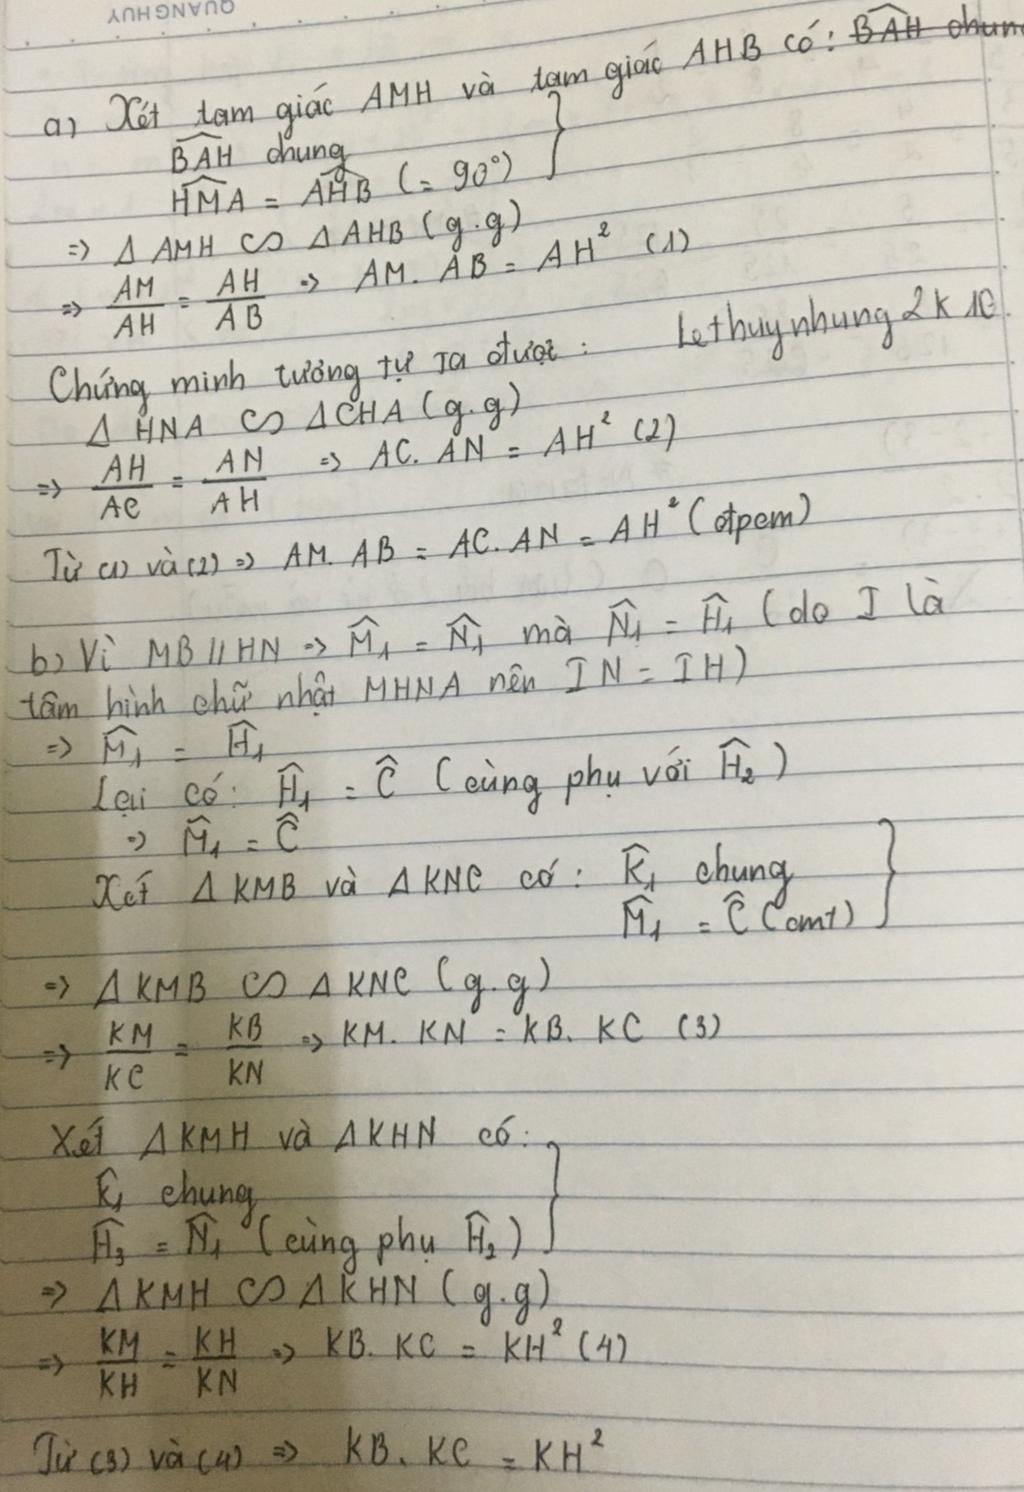 QUANG HUY
a) Xét tam giác AMH và tam giác AHB có: B̂AH chun
B̂AH chung
ĤMA = ÂHB (= 90°)
=> Δ AMH ∽ Δ AHB (g.g)
=> AM/AH = AH/AB => AM. AB = AH² (1)
Chứng minh tương tự ta được: Lethuynhung2k10
Δ HNA ∽ Δ CHA (g.g)
=> AH/AC = AN/AH => AC. AN = AH² (2)
Từ (1) và (2) => AM. AB = AC. AN = AH² (đtpcm)
b) Vì MB // HN => M̂₁ = N̂₁ mà N̂₁ = Ĥ₁ (do I là
tâm hình chữ nhật MHNA nên IN = IH)
=> M̂₁ = Ĥ₁
Lại có: Ĥ₁ = Ĉ (cùng phụ với Ĥ₂)
=> M̂₁ = Ĉ
Xét Δ KMB và Δ KNC có: K̂₁ chung
M̂₁ = Ĉ (cmt)
=> Δ KMB ∽ Δ KNC (g.g)
=> KM/KC = KB/KN => KM. KN = KB. KC (3)
Xét Δ KMH và Δ KHN có:
K̂₁ chung
Ĥ₃ = N̂₁ (cùng phụ Ĥ₂)
=> Δ KMH ∽ Δ KHN (g.g)
=> KM/KH = KH/KN => KB. KC = KH² (4)
Từ (3) và (4) => KB. KC = KH²